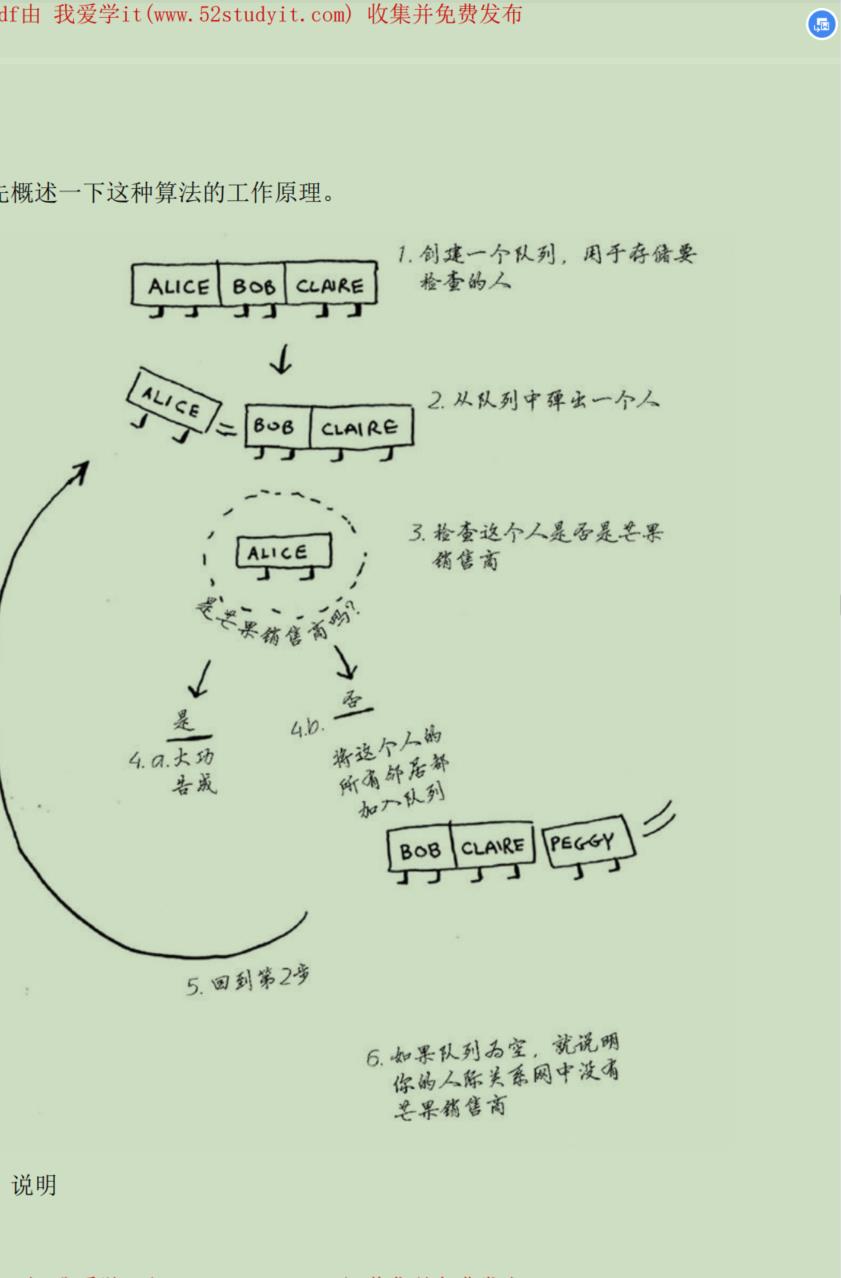 df由 我爱学it(www.52studyit.com) 收集并免费发布
先概述一下这种算法的工作原理。
ALICE BOB CLAIRE
1. 创建一个队列，用于存储要
检查的人
ALICE
BOB CLAIRE
2. 从队列中弹出一个人
ALICE
3. 检查这个人是否是芒果
销售商
是芒果销售商吗?
是
4.a.大功
告成
否
4.b.
将这个人的
所有邻居都
加入队列
BOB CLAIRE PEGGY
5. 回到第2步
6. 如果队列为空，就说明
你的人际关系网中没有
芒果销售商
说明